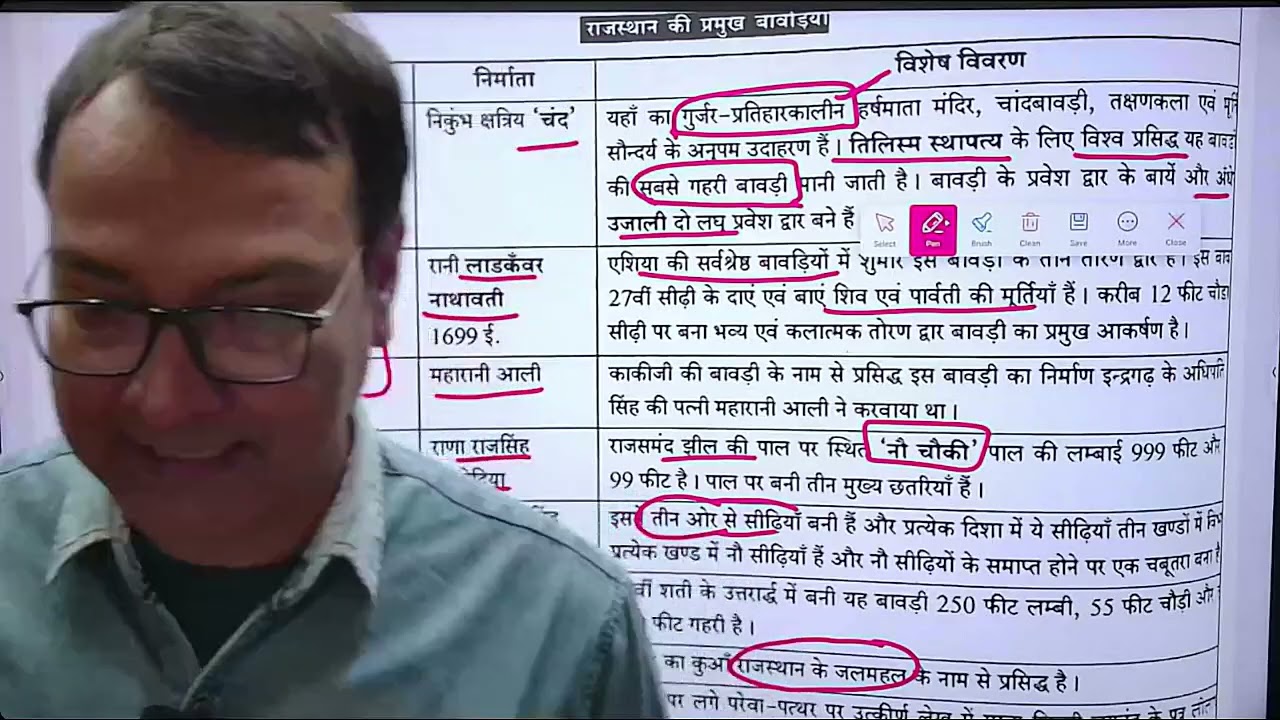 राजस्थान की प्रमुख बावड़ियाँ
निर्माता
विशेष विवरण
निकुंभ क्षत्रिय ‘चंद’
यहाँ का गुर्जर-प्रतिहारकालीन हर्षमाता मंदिर, चांदबावड़ी, तक्षणकला एवं
सौन्दर्य के अनुपम उदाहरण हैं। तिलिस्म स्थापत्य के लिए विश्व प्रसिद्ध यह
की सबसे गहरी बावड़ी मानी जाती है। बावड़ी के प्रवेश द्वार के बायें और
उजाली दो लघु प्रवेश द्वार बने हैं
Select
Pen
Brush
Clean
Save
More
Close
रानी लाडकँवर
नाथावती
1699 ई.
एशिया की सर्वश्रेष्ठ बावड़ियों में शुमार इस बावड़ी के तीन तोरण द्वार हैं। इस
27वीं सीढ़ी के दाएं एवं बाएं शिव एवं पार्वती की मूर्तियाँ हैं। करीब 12 फीट
सीढ़ी पर बना भव्य एवं कलात्मक तोरण द्वार बावड़ी का प्रमुख आकर्षण है।
महारानी आली
काकीजी की बावड़ी के नाम से प्रसिद्ध इस बावड़ी का निर्माण इन्द्रगढ़ के
सिंह की पत्नी महारानी आली ने करवाया था।
राणा राजसिंह
राजसमंद झील की पाल पर स्थित ‘नौ चौकी’ पाल की लम्बाई 999 फीट और
99 फीट है। पाल पर बनी तीन मुख्य छतरियाँ हैं।
तीन ओर से सीढ़ियाँ बनी हैं और प्रत्येक दिशा में ये सीढ़ियाँ तीन खण्डों में
प्रत्येक खण्ड में नौ सीढ़ियाँ हैं और नौ सीढ़ियों के समाप्त होने पर एक चबूतरा बना
शती के उत्तरार्द्ध में बनी यह बावड़ी 250 फीट लम्बी, 55 फीट चौड़ी और
फीट गहरी है।
का कुआँ राजस्थान के जलमहल के नाम से प्रसिद्ध है।
पर लगे परेवा-पत्थर पर उत्कीर्ण लेख में